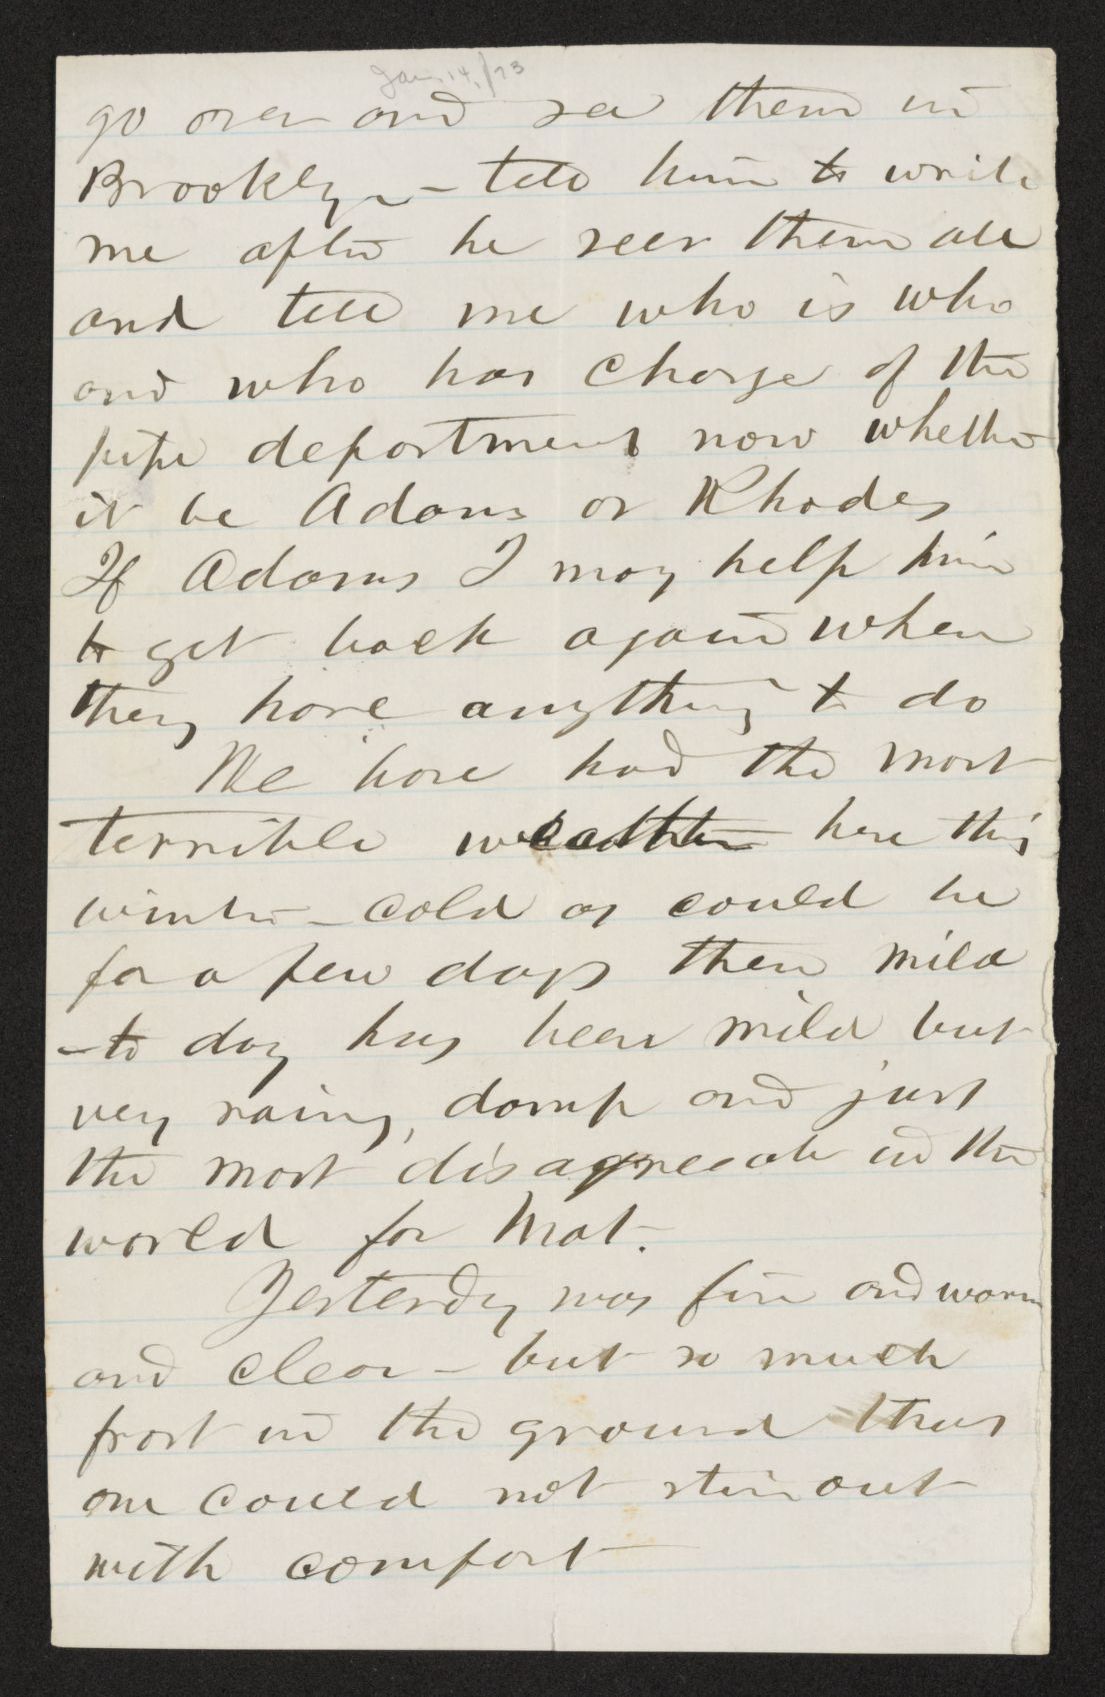 Jan. 14, /73
go over and see them in
Brooklyn – tell him to write
me after he sees them all
and tell me who is who
and who has charge of the
pipe department now whether
it be Adams or Rhodes
If Adams I may help him
to get back again when
they have anything to do
We have had the most
terrible weather here this
winter – cold as could be
for a few days then mild
– to day has been mild but
very rainy, damp and just
the most disagreeable in the
world for Mat.
Yesterdy was fine and warm
and clear – but so much
frost in the ground that
one could not stir out
with comfort